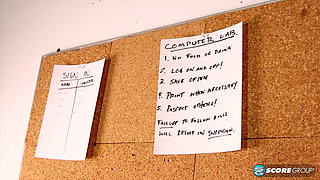 SIGN IN
NAME
COMPUTER LAB
1. NO FOOD OR DRINK
2. LOG ON AND OFF!
3. SAVE OFTEN
4. PRINT WHEN NECESSARY!
5. RESPECT OTHERS!
FAILURE TO FOLLOW RULES
WILL RESULT IN SUSPENSION.
SCOREGROUP